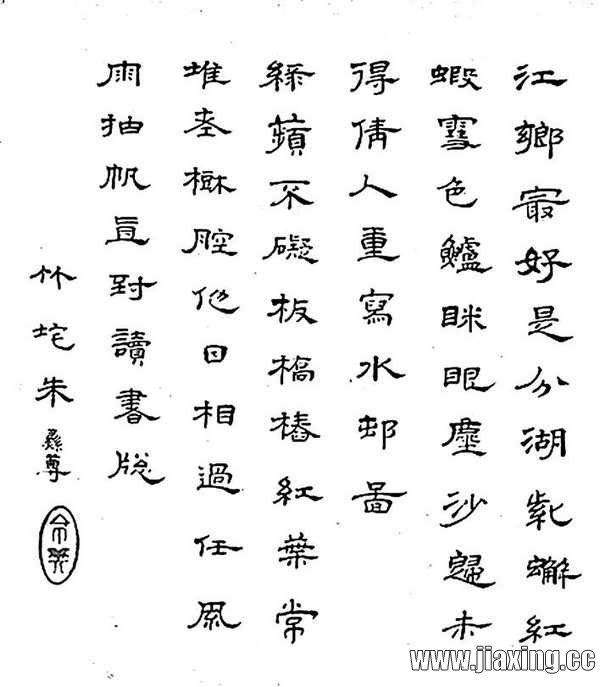 江鄉㝡好是分湖紫蠏紅
蝦雪色鱸眯眼塵沙歸未
得倩人重寫水邨圖
綠蘋不礙板橋樁紅葉常
堆老樹腔他日相過任風
雨抽帆直對讀書牕
竹垞朱彝尊
www.jiaxing.cc